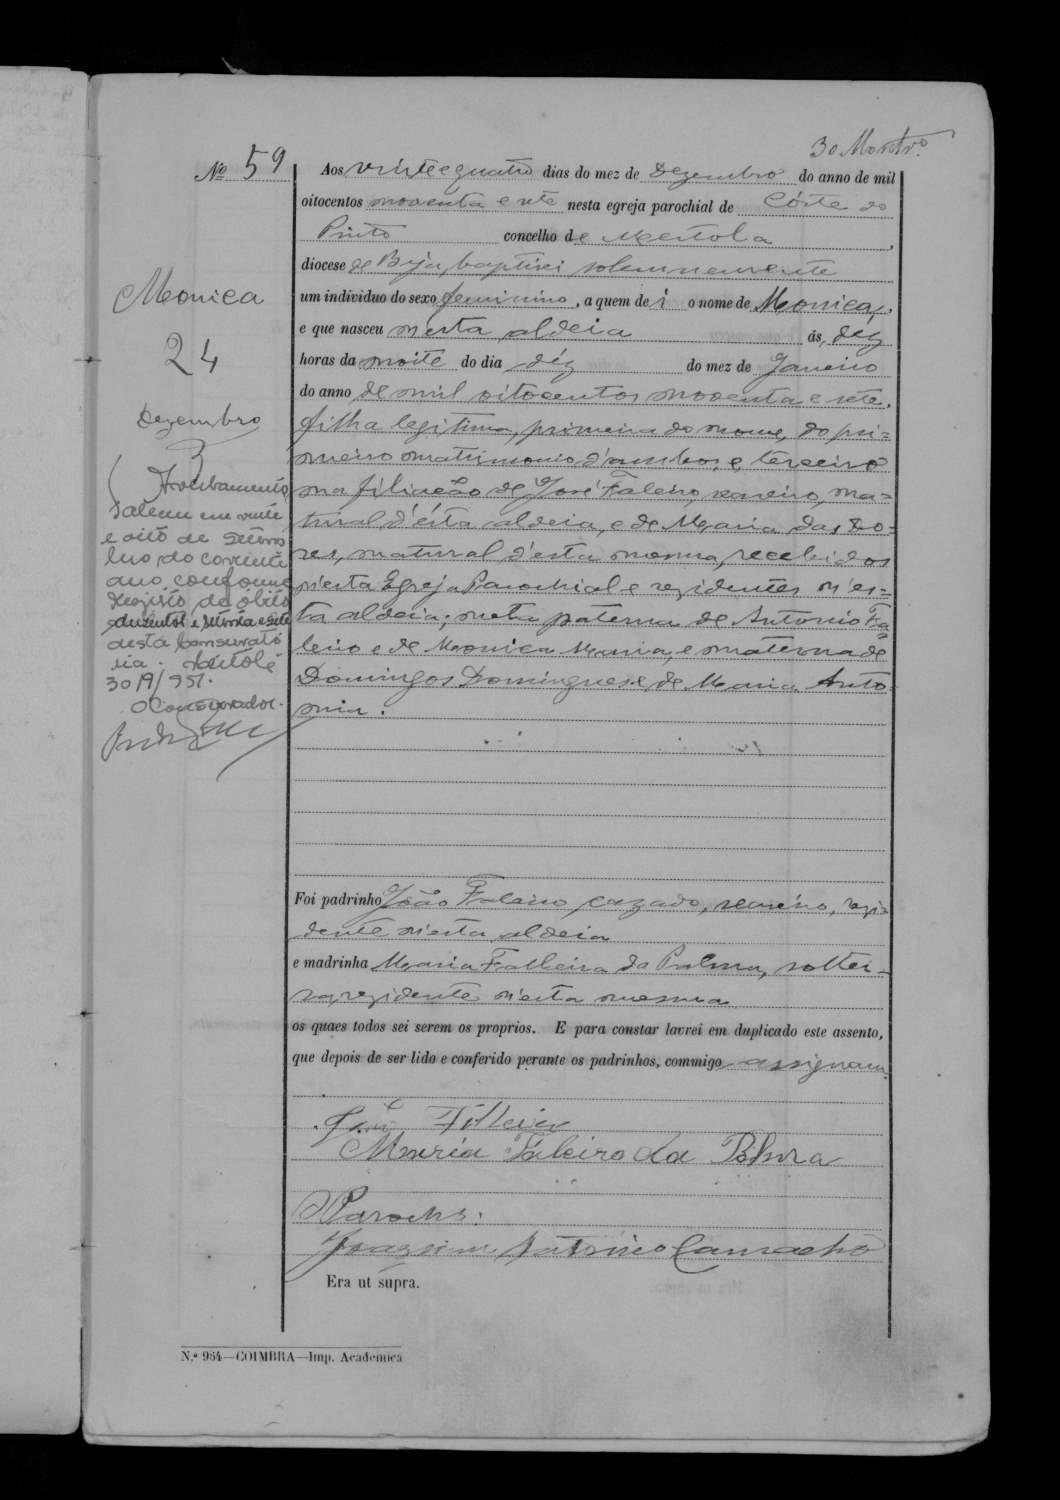 30 Montrº
Nº 59
Aos vinte e quatro dias do mez de Dezembro do anno de mil
oitocentos noventa e sete nesta egreja parochial de Córte do
Pinto concelho de Mertola,
diocese de Beja, baptisei solemnemente
um individuo do sexo feminino, a quem dei o nome de Monica,
e que nasceu nesta aldeia ás dez
horas da noite do dia déz do mez de Janeiro
do anno de mil oitocentos noventa e sete,
filha legitima, primeira do nome, do pri=
meiro matrimonio d'ambos, e, terceiro
na filiação de José Faleiro, seareiro, na=
tural d'ésta aldeia, e de Maria das Do=
res, natural d'esta mesma, recebidos
n'esta Egreja Parochial e rezidentes n'es=
ta aldeia; neta paterna de Antonio Fa=
leiro e de Monica Maria, e materna de
Domingos Domingues e de Maria Anto-
nia.
Monica
24
Dezembro
Averbamento
Faleceu em vinte
e oito de Setem
bro do corrente
ano, conforme
registo de óbito
duzentos e setenta e sete
desta Conservató
ria. Mértola
30/9/957.
O Conservador.
Foi padrinho João Faleiro cazado, seareiro, rezi=
dente n'esta aldeia
e madrinha Maria Falleira da Palma, soltei-
ra, rezidente n'esta mesma
os quaes todos sei serem os proprios. E para constar lavrei em duplicado este assento,
que depois de ser lido e conferido perante os padrinhos, commigo assignam.
João Falleiro
Maria Faleiro da Palma
O Parocho:
Joaquim Antonio Camacho
Era ut supra.
N.º 954—COIMBRA—Imp. Academica